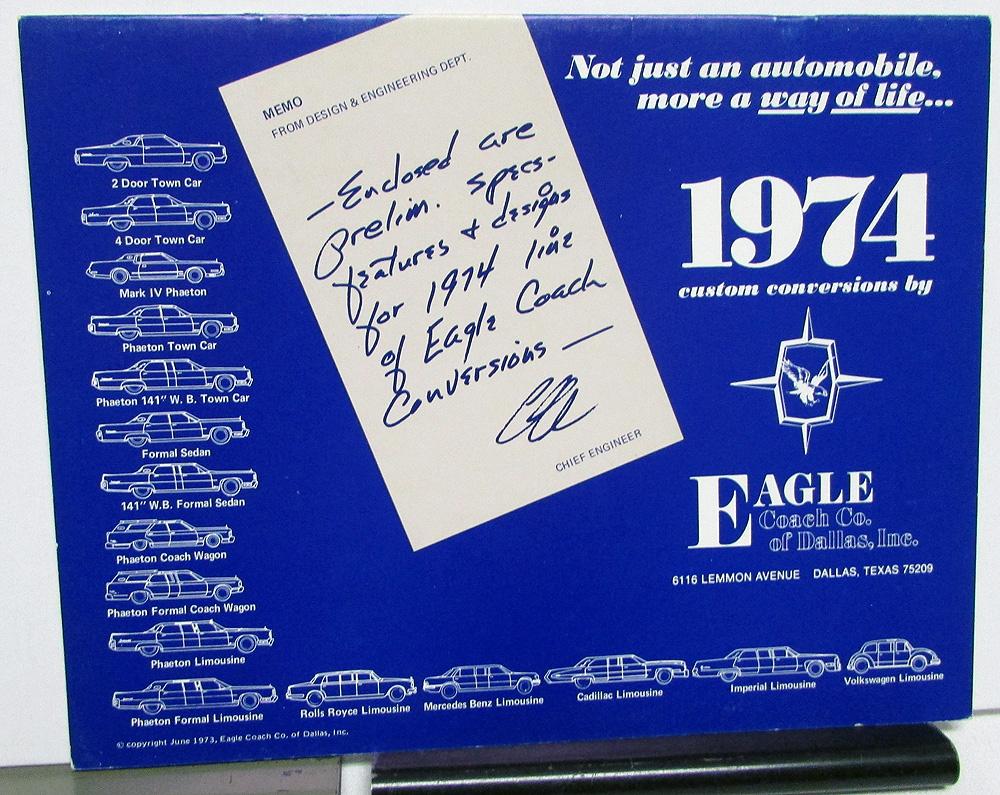 Not just an automobile,
more a way of life...
MEMO
FROM DESIGN & ENGINEERING DEPT.
—Enclosed are
prelim. specs-
features & designs
for 1974 line
of Eagle Coach
Conversions —
CHIEF ENGINEER
1974
custom conversions by
EAGLE
Coach Co.
of Dallas, Inc.
6116 LEMMON AVENUE DALLAS, TEXAS 75209
2 Door Town Car
4 Door Town Car
Mark IV Phaeton
Phaeton Town Car
Phaeton 141" W. B. Town Car
Formal Sedan
141" W.B. Formal Sedan
Phaeton Coach Wagon
Phaeton Formal Coach Wagon
Phaeton Limousine
Phaeton Formal Limousine
Rolls Royce Limousine
Mercedes Benz Limousine
Cadillac Limousine
Imperial Limousine
Volkswagen Limousine
© copyright June 1973, Eagle Coach Co. of Dallas, Inc.